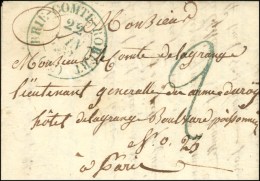 BRIE-COMTE-ROBERT
22
Monsieur
Monsieur le Comte delagrange
lieutenant generalle des armé du roy
hôtel delagrange Boulvare poissonnier
No. 23
à Paris
2